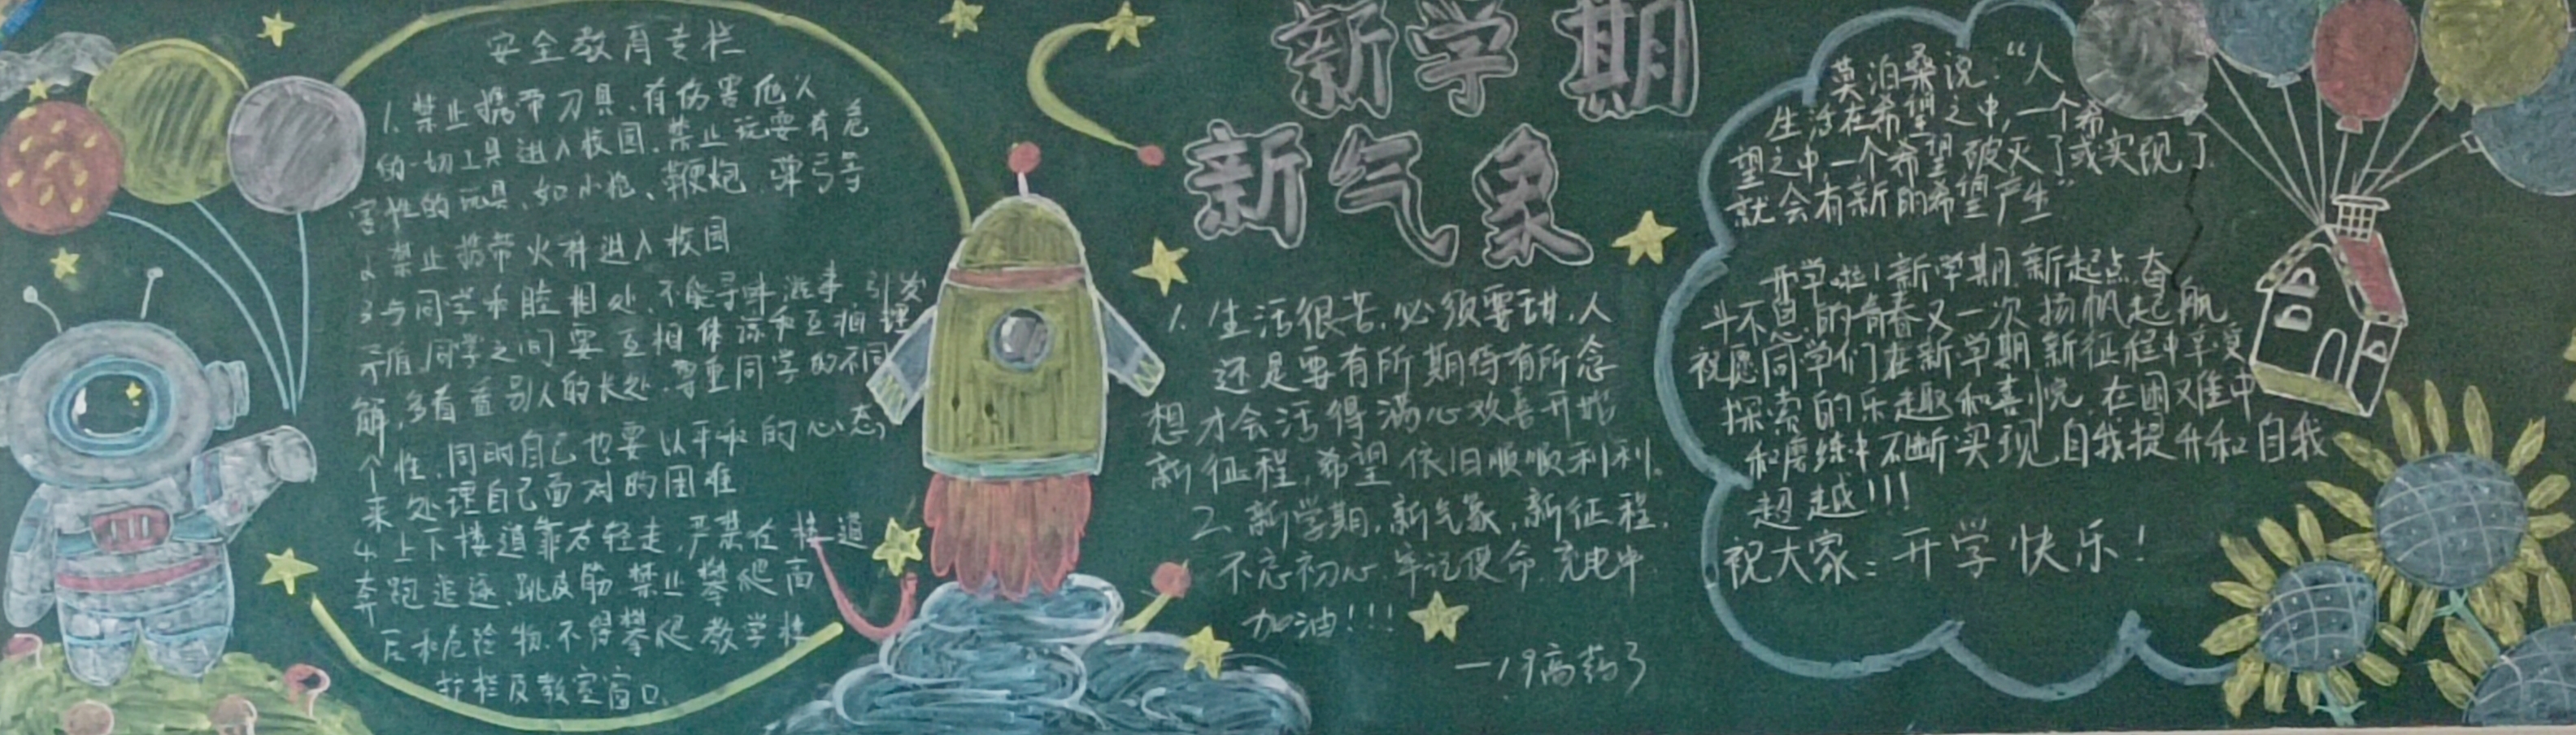 安全教育专栏
1.禁止携带刀具、有伤害他人
的一切工具进入校园.禁止玩耍有危
害性的玩具、如小枪、鞭炮、弹弓等
2禁止携带火种进入校园
3与同学和睦相处、不能寻衅滋事、引发
矛盾.同学之间要互相体谅和互相理
解,多看看别人的长处.尊重同学的不同
个性、同时自己也要以平和的心态
来处理自己面对的困难
4.上下楼道靠右轻走,严禁在楼道
奔跑追逐、跳皮筋禁止攀爬高
层和危险物.不得攀爬教学楼
护栏及教室窗口.
新学期
新气象
1.生活很苦.必须要甜.人
还是要有所期待有所念
想才会活得满心欢喜开始
新征程,希望依旧顺顺利利。
2.新学期,新气象,新征程.
不忘初心.牢记使命.充电中
加油!!!
一!19高药3
莫泊桑说:“人
生活在希望之中,一个希
望之中一个希望破灭了或实现了.
就会有新的希望产生”
开学啦!新学期.新起点奋
斗不息的青春又一次扬帆起航
祝愿同学们在新学期新征程中享受
探索的乐趣和喜悦.在困难中
和磨练中不断实现自我提升和自我
超越!!!
祝大家:开学快乐!